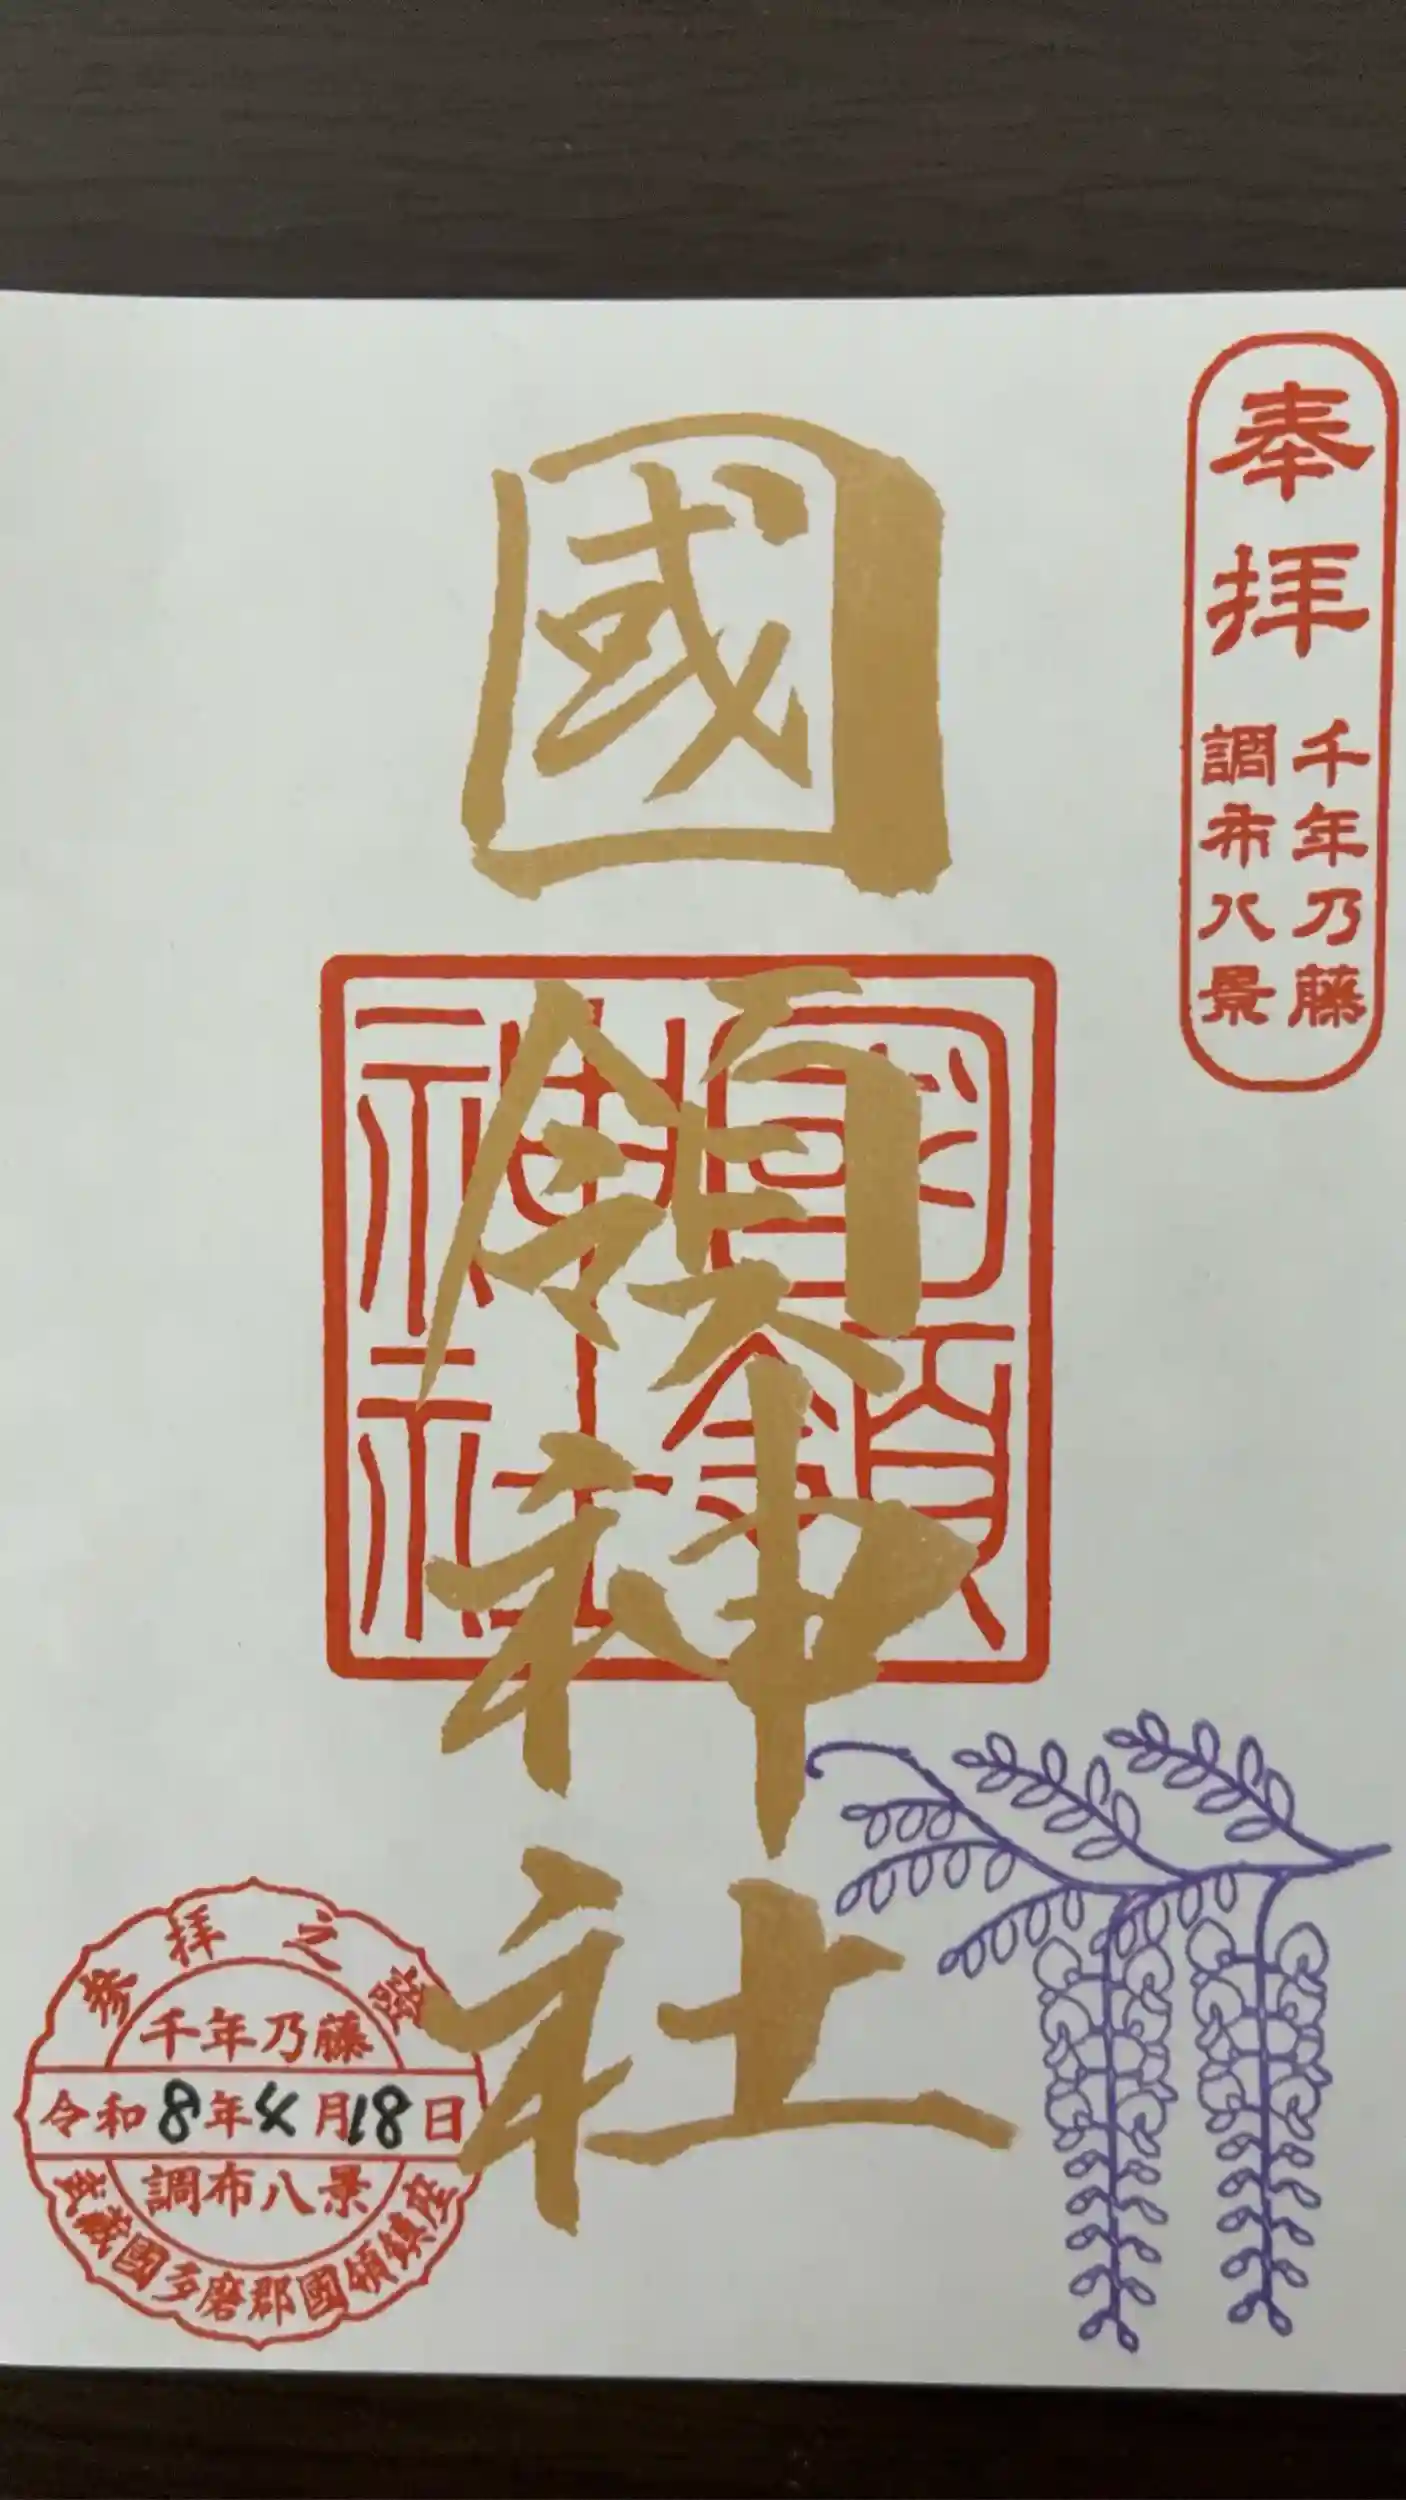 奉拝
千年乃藤
調布八景
國領神社
国領
神社
参拝之證
千年乃藤
令和8年4月18日
調布八景
武蔵國多磨郡國領鎮座